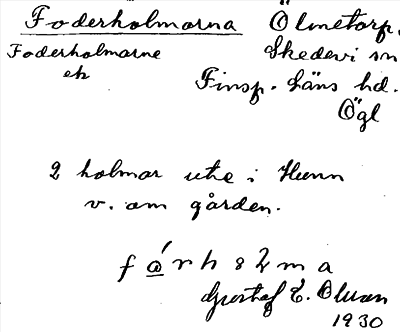 Foderholmarna Ölmetorp.
Foderholmarne Skedevi sn
ek Finsp. läns hd.
Ögl
2 holmar ute i Hunn
v. om gården.
Gustaf E. Olsson
1930